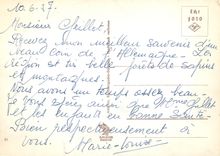 10.6.37.
Monsieur Chillot
Recevez mon meilleur souvenir d'un
beau coin de l'Allemagne. La
région est très belle forêts de sapins
et montagnes.
Nous avons un temps assez beau
Je vous espère ainsi que Mme Chillot
et les enfants en bonne santé
Bien respectueusement à
vous.
Marie-Louise